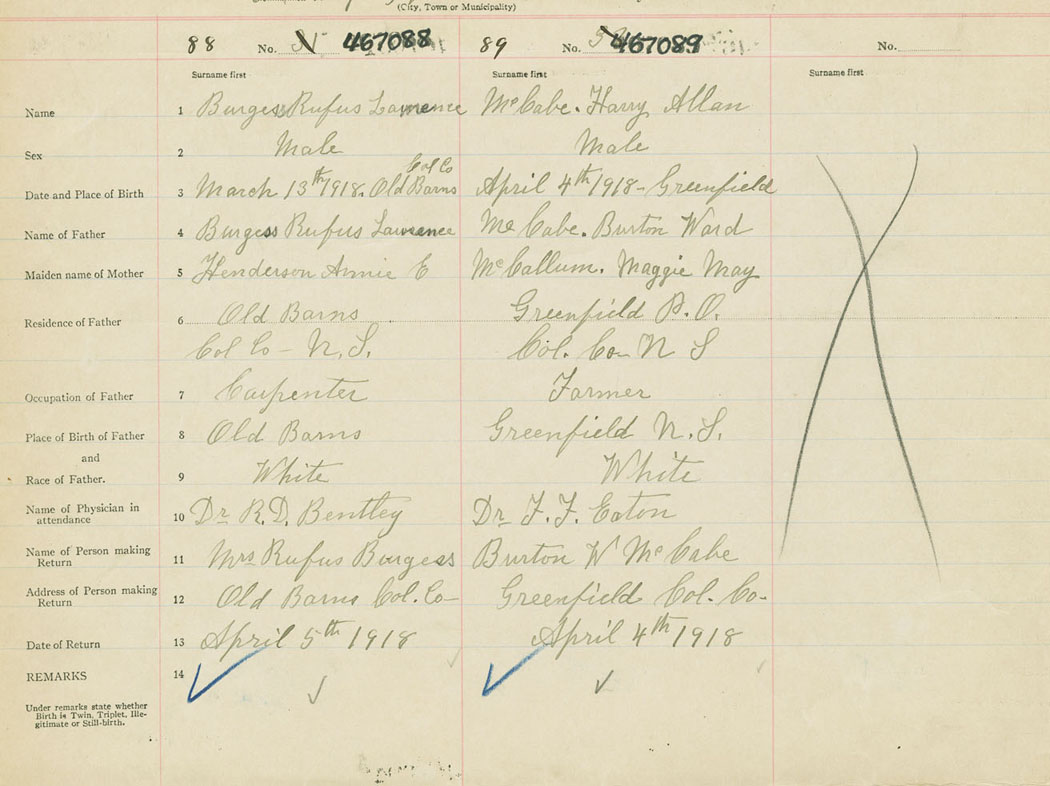 (City, Town or Municipality)
88 No. 467088 89 No. 467089 No.
Surname first Surname first Surname first
Name 1 Burgess Rufus Lawrence McCabe. Harry Allan
Sex 2 Male Male
Col Co
Date and Place of Birth 3 March 13th 1918. Old Barns April 4th 1918 - Greenfield
Name of Father 4 Burgess Rufus Lawrence McCabe. Burton Ward
Maiden name of Mother 5 Henderson Annie E McCallum. Maggie May
Residence of Father 6 Old Barns Greenfield P.O.
Col Co - N.S. Col. Co - N S
Occupation of Father 7 Carpenter Farmer
Place of Birth of Father 8 Old Barns Greenfield N.S.
and
Race of Father. 9 White White
Name of Physician in
attendance 10 Dr R.D. Bentley Dr F.F. Eaton
Name of Person making
Return 11 Mrs Rufus Burgess Burton W McCabe
Address of Person making
Return 12 Old Barns Col. Co - Greenfield Col. Co -
Date of Return 13 April 5th 1918 April 4th 1918
REMARKS 14
Under remarks state whether
Birth is Twin, Triplet, Ille-
gitimate or Still-birth.